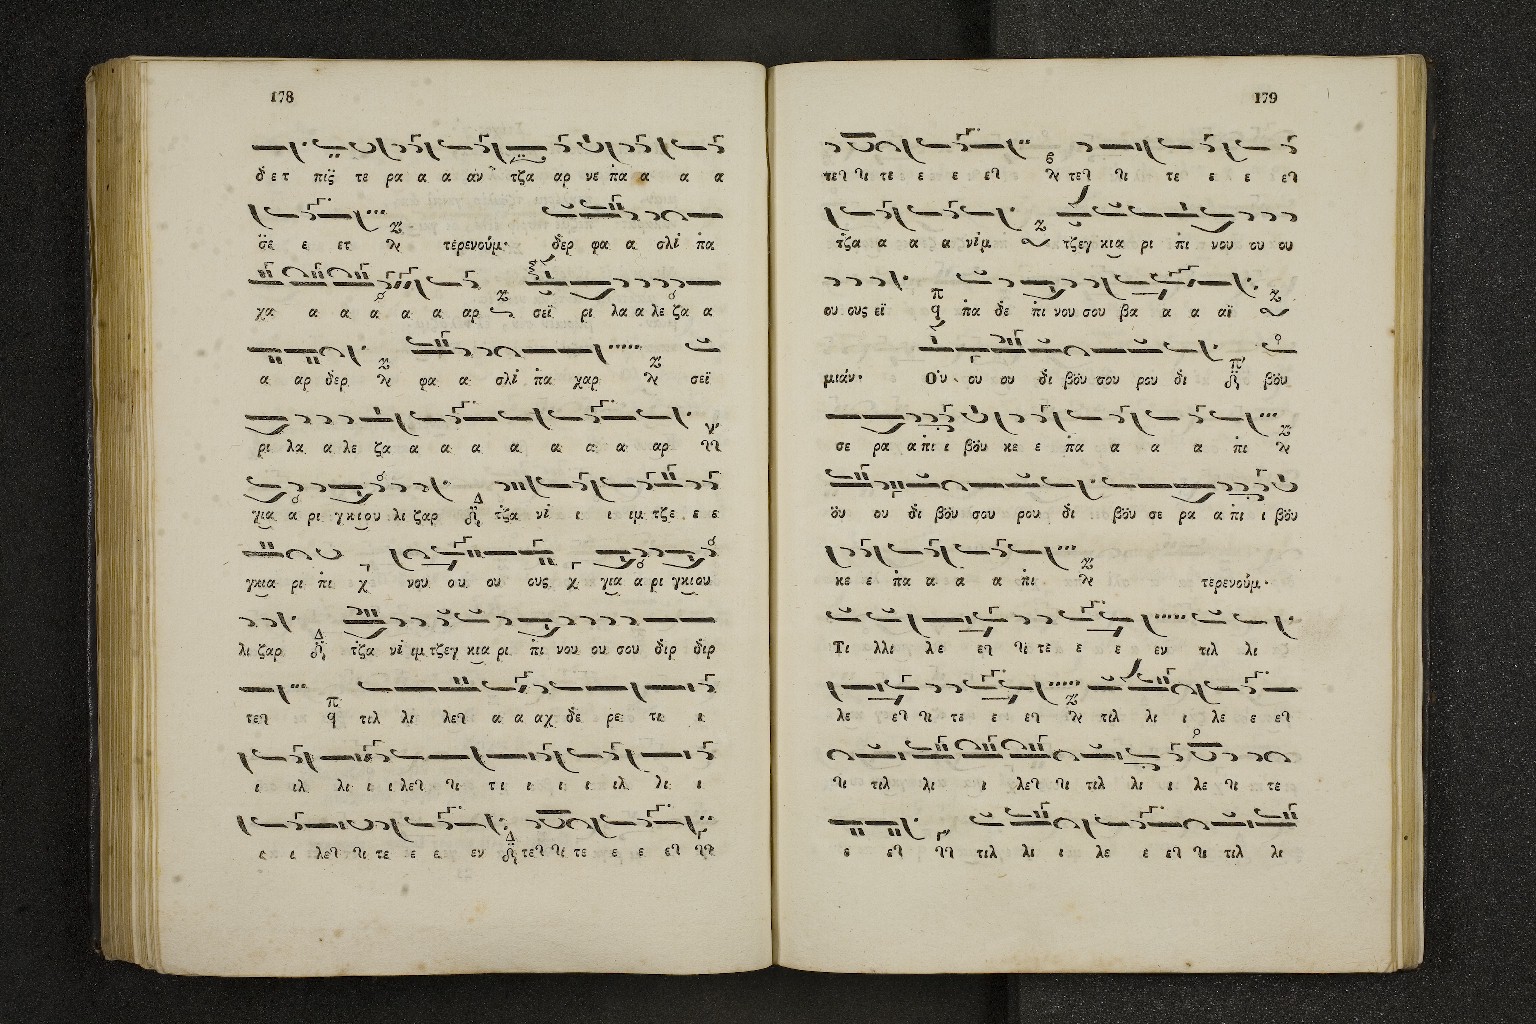 178
δετ πις̈ τε ρα α α αν τζα αρ νε πα α α α
σ̈ε ε ετ τερενούμ· δερ φα α σλί πα
χα α α α α α αρ σεϊ ρι λα α λε ζα α
α αρ δερ φα α σλί πα χαρ σεϊ
ρι λα α λε ζα α α α α α α αρ
για α ρι γκιου λι ζαρ τζα νί ι ι ιμ τζε ε ε
γκια ρι πι χ νου ου ου ους χ για α ρι γκιου
λι ζαρ τζα νί ιμ τζεγ κια ρι πι νου ου σου διρ διρ
τετ q τιλ λι λετ α α αχ δε ρε τι ι
ι ιλ λι ι ι λετ τι τι ι ι ι ιλ λι ι
ι ι λετ τι τε ε ε εν τετ τι τε ε ε ετ
179
τετ τι τε ε ε ετ τετ τι τε ε ε ετ
τζα α α α νίμ τζεγ κια ρι πι νου ου ου
ου ους εϊ q πα δε πι νου σου βα α α αϊ
μιάν· Ού ου ου δι βôυ σου ρου δι βôυ
σε ρα α πι ι βôυ κε ε πα α α α πι
ôυ ου δι βôυ σου ρου δι βôυ σε ρα α πι ι βôυ
κε ε πα α α α πι τερενούμ·
Τι λλι λε ετ τι τε ε ε εν τιλ λι
λε ετ τι τε ε ετ τιλ λι ι λε ε ετ
τι τιλ λι ι λετ τι τιλ λι ι λε τι τε
ε ετ τιλ λι ι λε ε ετ τι τιλ λι